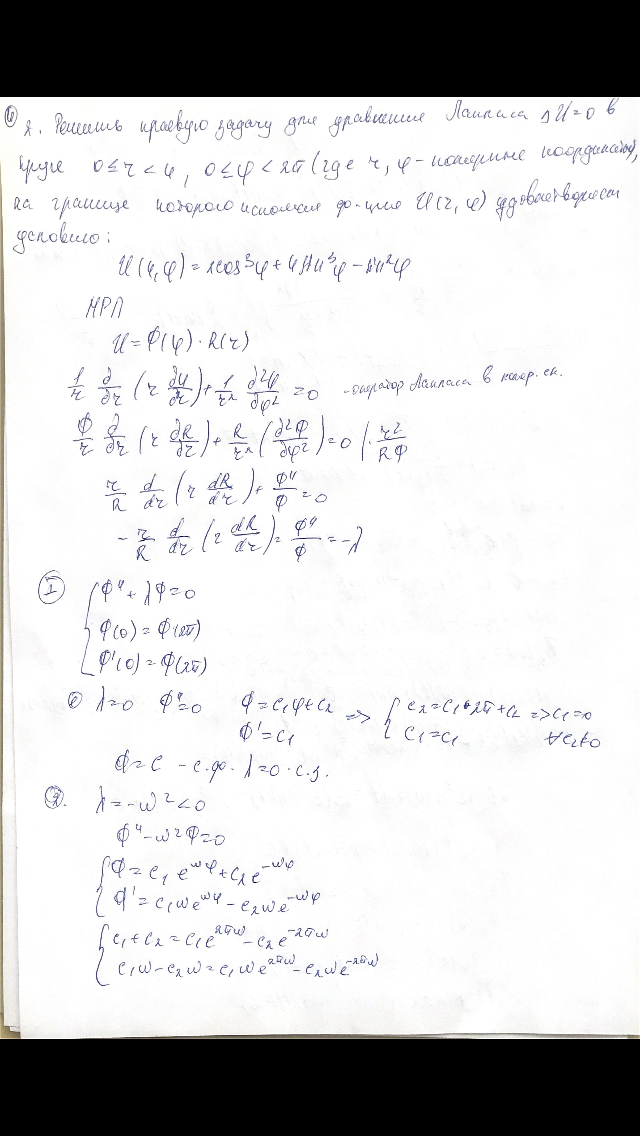 2. Решить краевую задачу для уравнения Лапласа ΔU=0 в
круге 0≤r<4, 0≤φ<2π (где r, φ - полярные координаты),
на границе которого искомая ф-ция U(r,φ) удовлетворяет
условию:
U(4,φ)=2cos³φ+4sin³φ-sin2φ
МРП
U=Φ(φ)·R(r)
1/r ∂/∂r (r ∂U/∂r)+1/r² ∂²φ/∂φ²=0 - оператор Лапласа в поляр. ск.
Φ/r ∂/∂r (r ∂R/∂r)+R/r² (∂²Φ/∂φ²)=0 |· r²/RΦ
r/R d/dr (r dR/dr)+Φ''/Φ=0
-r/R d/dr (r dR/dr)=Φ''/Φ=-λ
I { Φ''+λΦ=0
Φ(0)=Φ(2π)
Φ'(0)=Φ(2π)
λ=0 Φ''=0 Φ=c₁φ+c₂ => { c₂=c₁·2π+c₂ => c₁=0
Φ'=c₁ c₁=c₁ ∀c₂≠0
Φ=c - с.ф. λ=0 - с.з.
2. λ=-ω²<0
Φ''-ω²Φ=0
{ Φ=c₁e^{ωφ}+c₂e^{-ωφ}
Φ'=c₁ωe^{ωφ}-c₂ωe^{-ωφ}
{ c₁+c₂=c₁e^{2πω}-c₂e^{-2πω}
c₁ω-c₂ω=c₁ωe^{2πω}-c₂ωe^{-2πω}